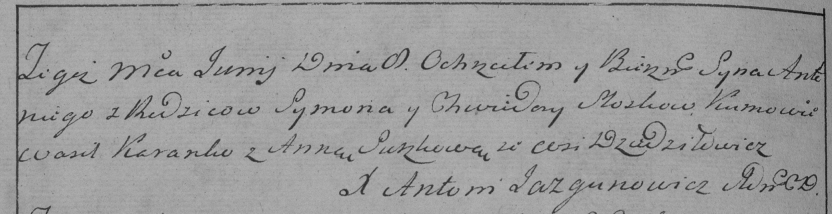 Tegoż Mca Junij Dnia 8. Ochrzciłem y Bierzm Syna Anto
niego z Rodzicow Symona y Chwiedory Kumowie
Wasil Karanko z Anną ze wsi Dziedziłowicz
X Antoni Jazgunowicz